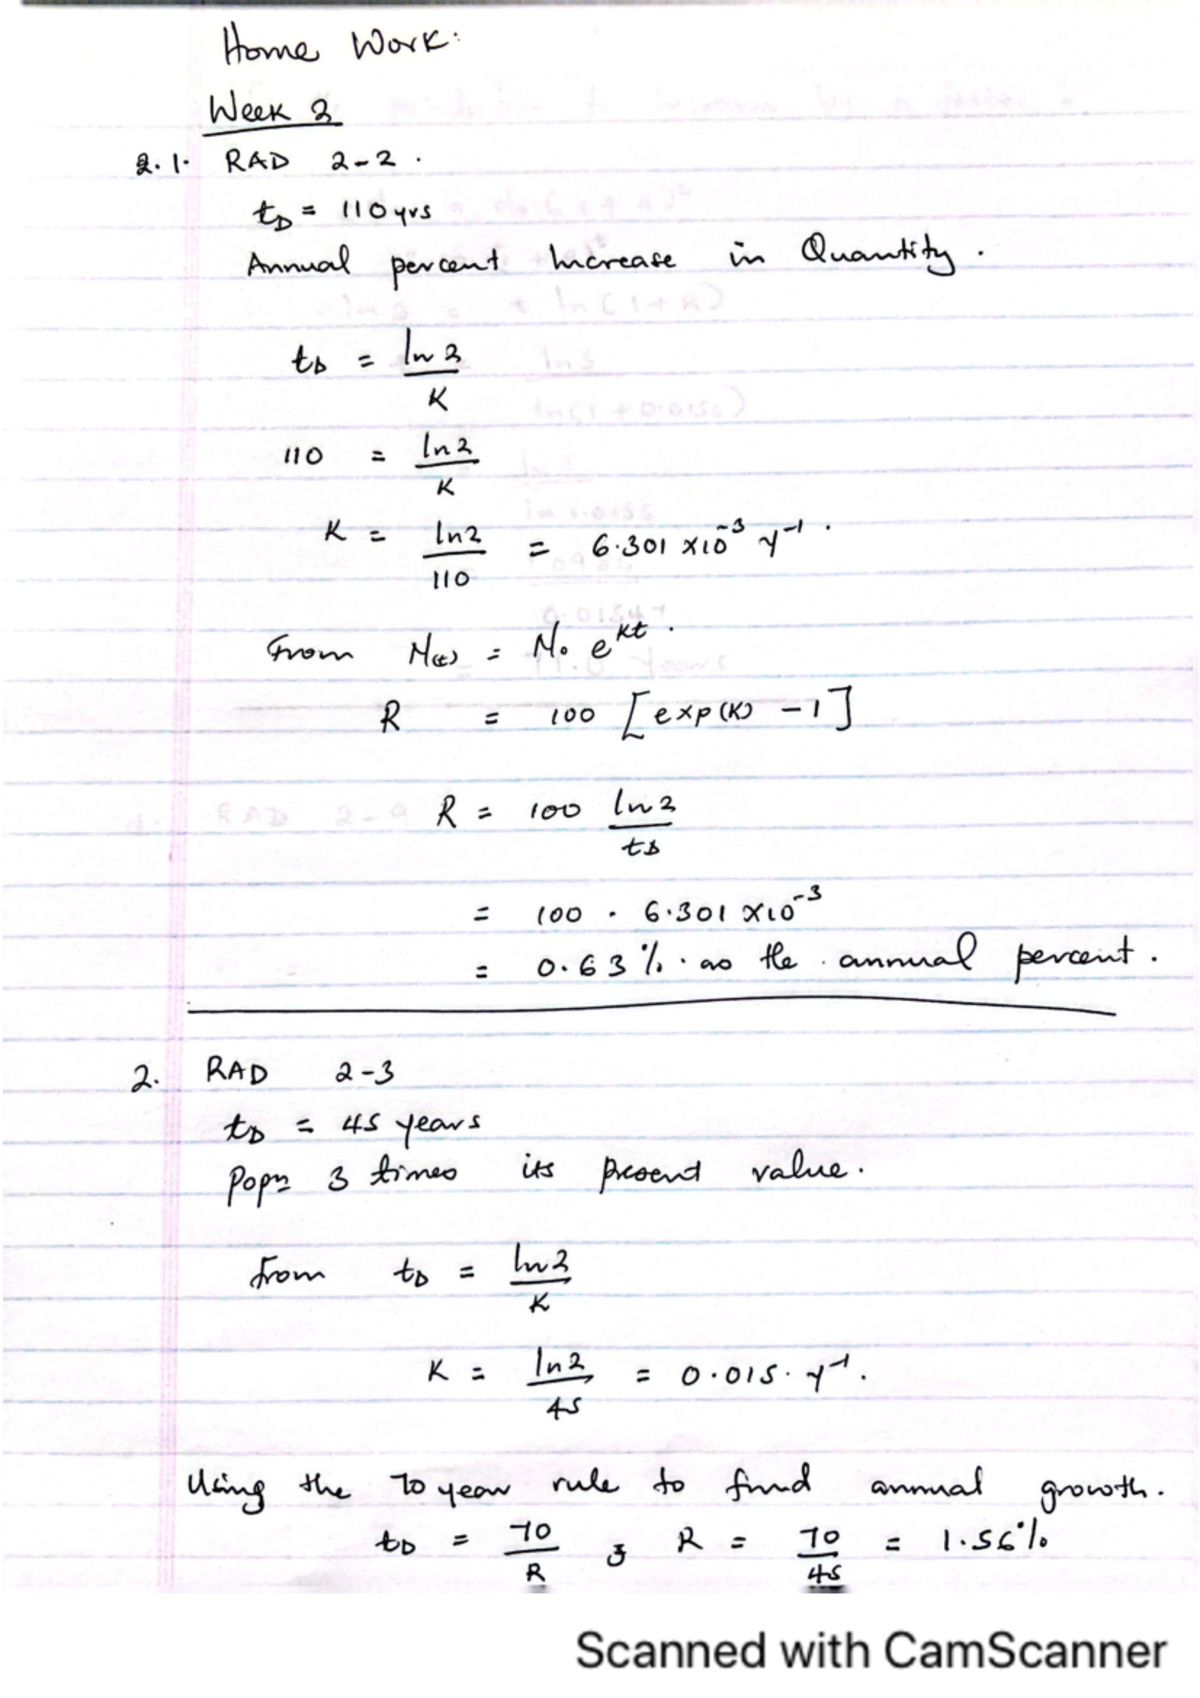 Home Work:
Week 2
2.1. RAD 2-2.
t_D = 110 yrs
Annual percent Increase in Quantity.
t_D = ln 2 / K
110 = ln 2 / K
K = ln 2 / 110 = 6.301 x10^-3 y^-1.
From N(t) = N₀ e^kt.
R = 100 [exp(K) - 1]
R = 100 ln 2 / t_D
= 100 . 6.301 x10^-3
= 0.63%. as the annual percent.
2. RAD 2-3
t_D = 45 years
Popn 3 times its present value.
From t_D = ln 2 / K
K = ln 2 / 45 = 0.015. y^-1.
Using the 70 year rule to find annual growth.
t_D = 70 / R ; R = 70 / 45 = 1.56%
Scanned with CamScanner